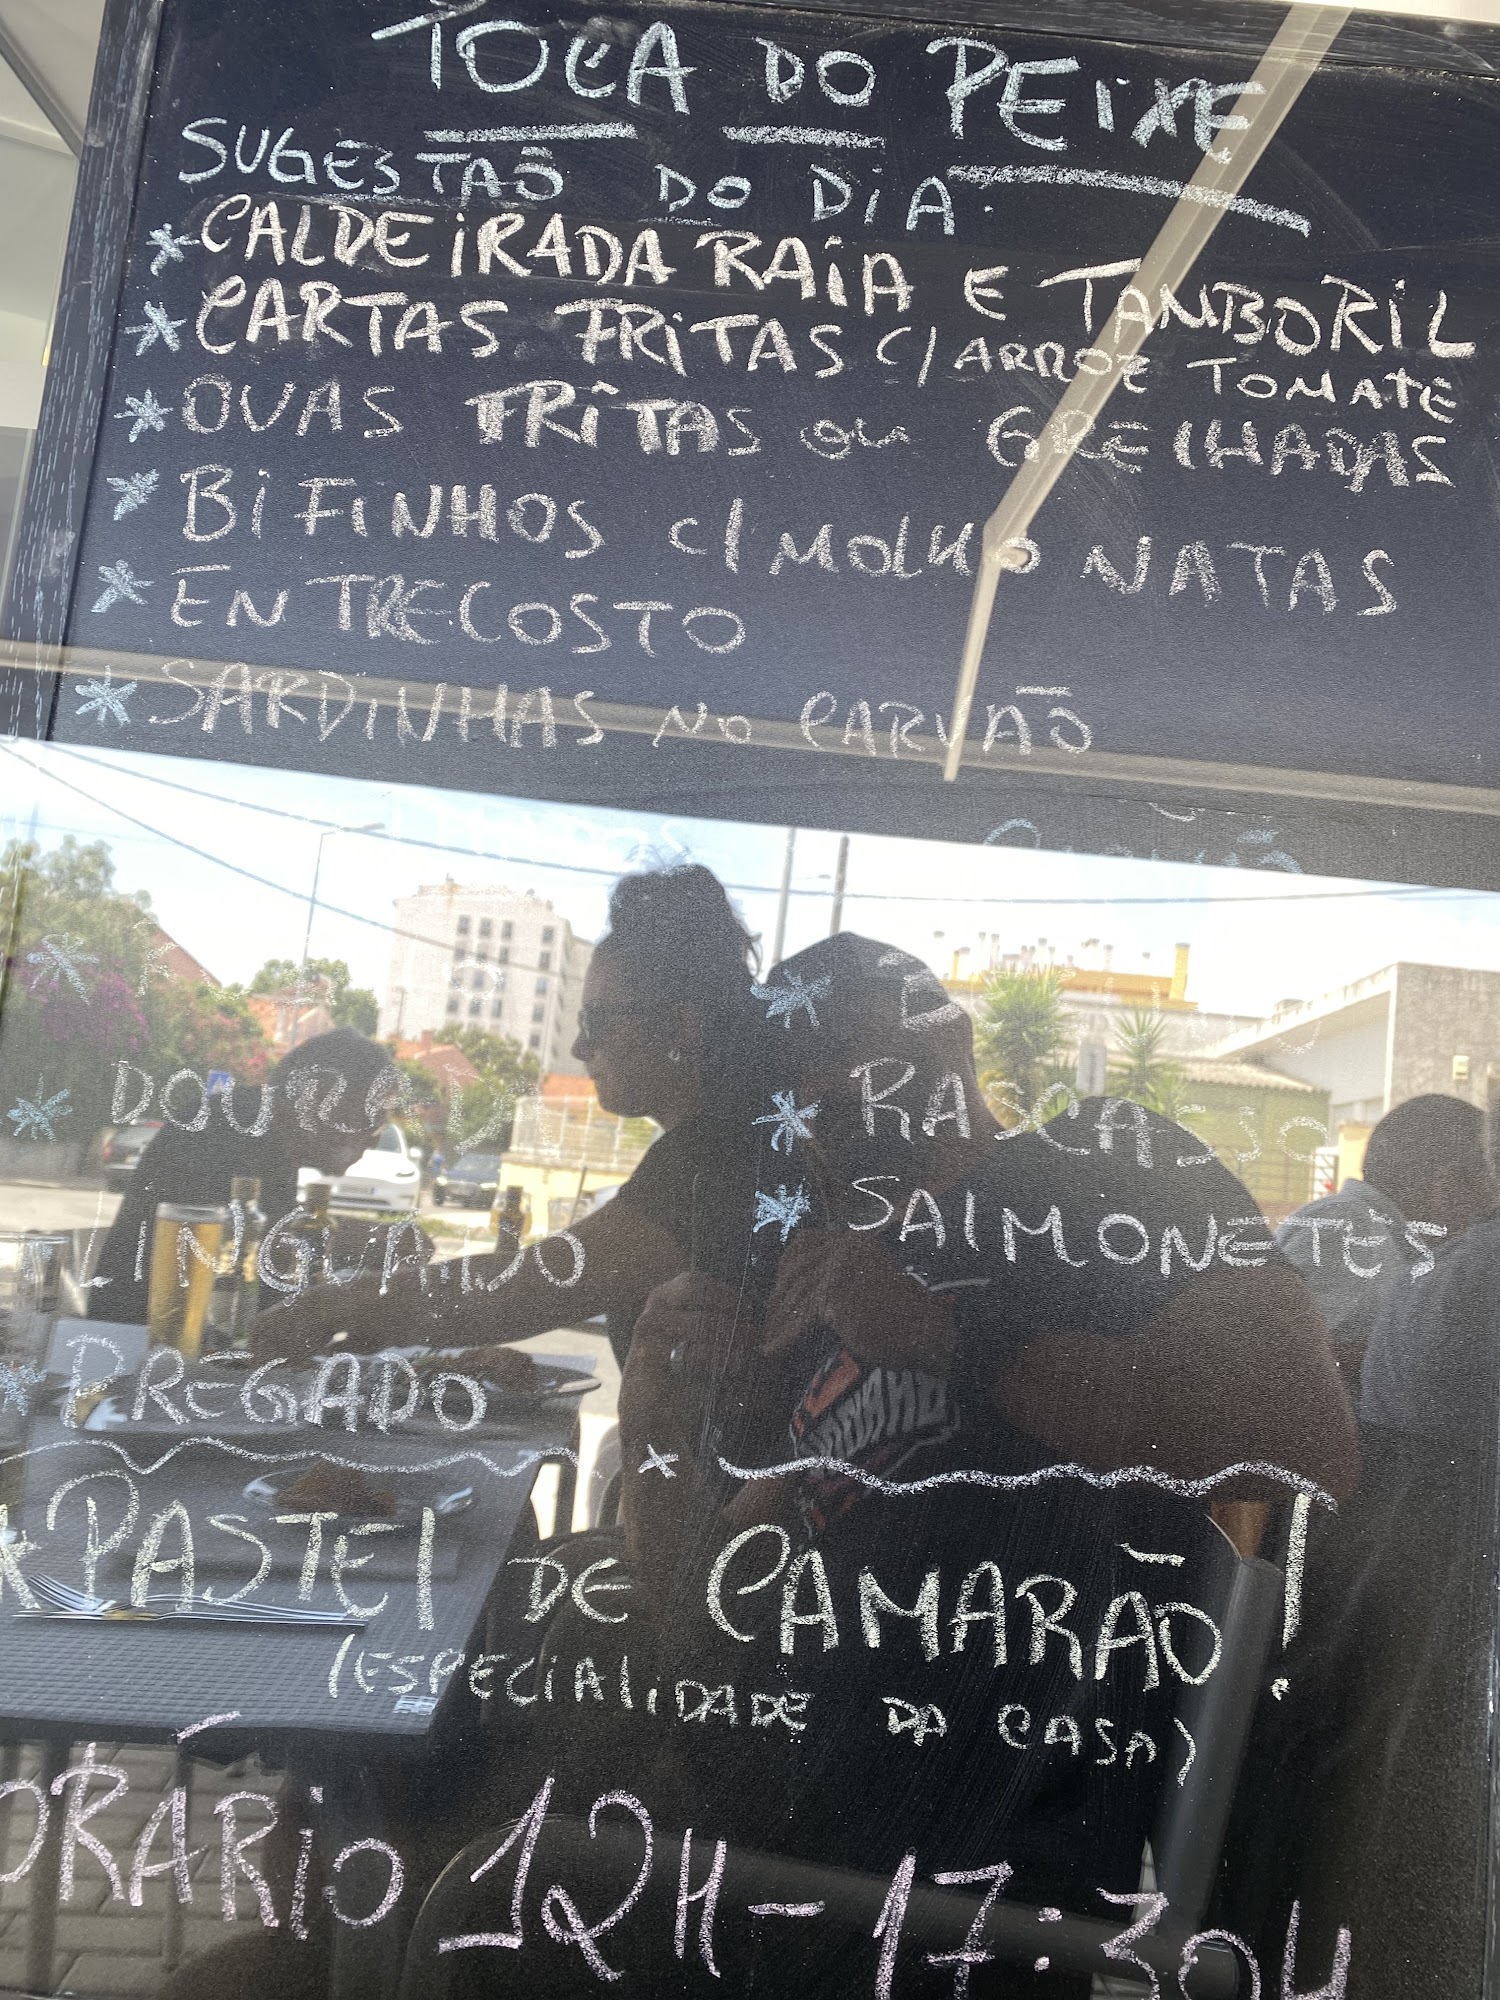 TOCA DO PEIXE
SUGESTÃO DO DIA.
* CALDEIRADA RAIA E TAMBORIL
* CARTAS FRITAS C/ ARROZ TOMATE
* OVAS FRITAS OU GRELHADAS
* BIFINHOS C/ MOLHO NATAS
* ENTRECOSTO
* SARDINHAS NO CARVÃO
* DOURADA * RASCASSO
LINGUADO * SALMONETES
* PREGADO
* PASTEL DE CAMARÃO!
(ESPECIALIDADE DA CASA)
ORÁRIO 12H - 17:30H